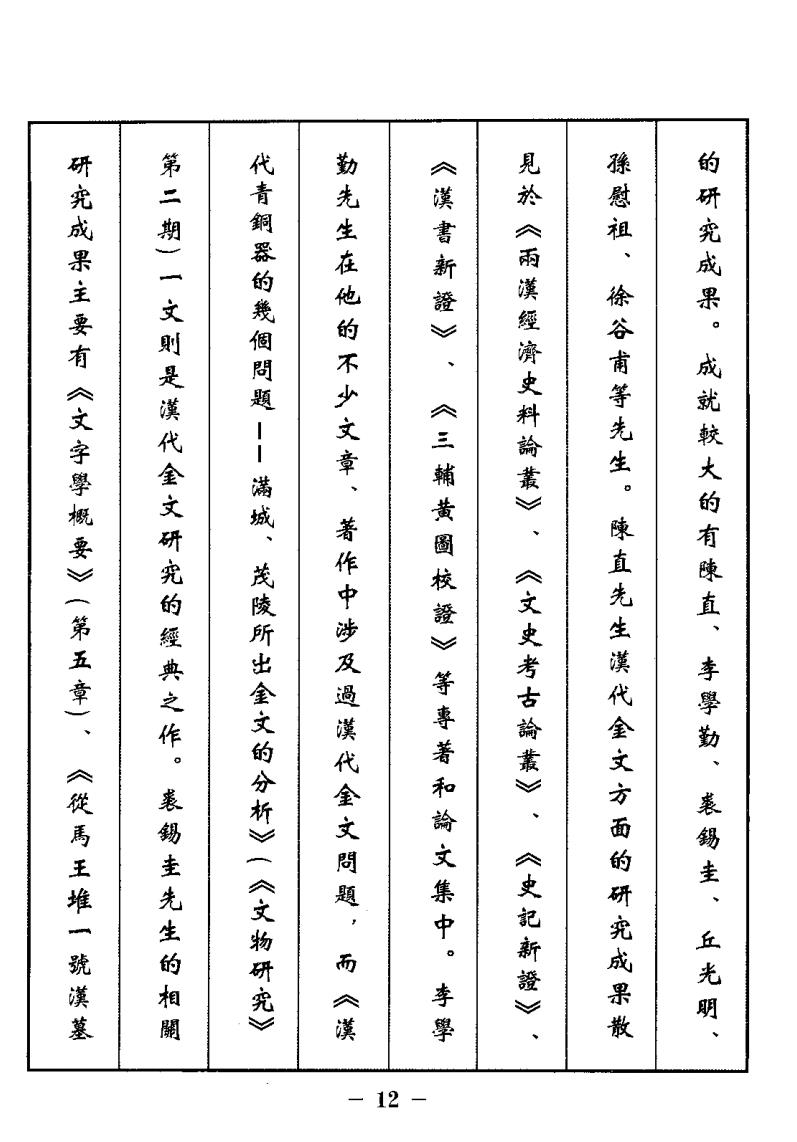 的研究成果。成就較大的有陳直、李學勤、裘錫圭、丘光明、
孫慰祖、徐谷甫等先生。陳直先生漢代金文方面的研究成果散
見於《兩漢經濟史料論叢》、《文史考古論叢》、《史記新證》、
《漢書新證》、《三輔黃圖校證》等專著和論文集中。李學
勤先生在他的不少文章、著作中涉及過漢代金文問題，而《漢
代青銅器的幾個問題——滿城、茂陵所出金文的分析》(《文物研究》
第二期)一文則是漢代金文研究的經典之作。裘錫圭先生的相關
研究成果主要有《文字學概要》(第五章)、《從馬王堆一號漢墓
– 12 –